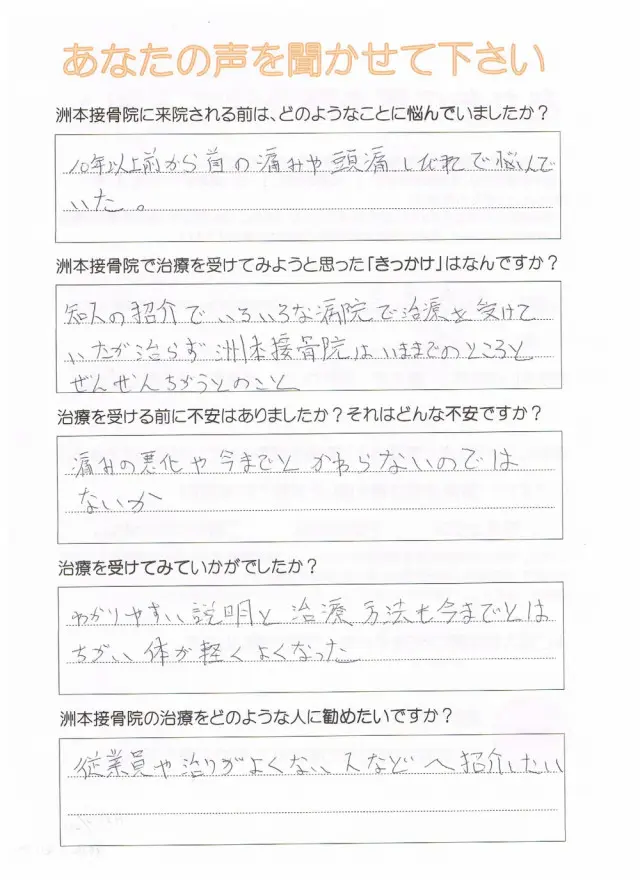 あなたの声を聞かせて下さい
洲本接骨院に来院される前は、どのようなことに悩んでいましたか？
10年以上前から首の痛みや頭痛しびれで悩んで
いた。
洲本接骨院で治療を受けてみようと思った「きっかけ」はなんですか？
知人の紹介でいろいろな病院で治療を受けて
いたが治らず洲本接骨院はいままでのところと
ぜんぜんちがうとのこと
治療を受ける前に不安はありましたか？それはどんな不安ですか？
痛みの悪化や今までとかわらないのでは
ないか
治療を受けてみていかがでしたか？
わかりやすい説明と治療方法も今までとは
ちがい体が軽くよくなった
洲本接骨院の治療をどのような人に勧めたいですか？
従業員や治りがよくない人などへ紹介したい